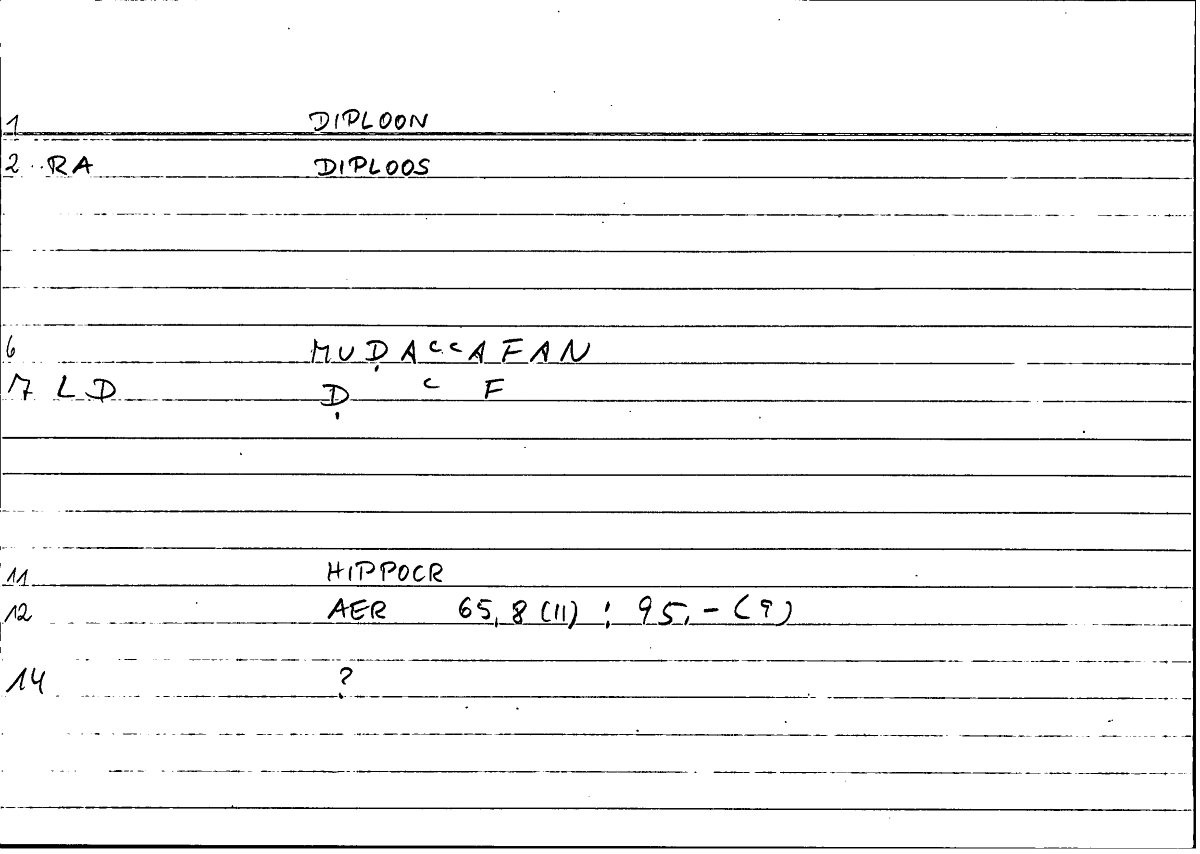 1 DIPLOON
2 RA DIPLOOS
6 MUḌAʿʿAFAN
7 LD Ḍ ʿ F
11 HIPPOCR
12 AER 65,8 (11) ; 95,- (9)
14 ?